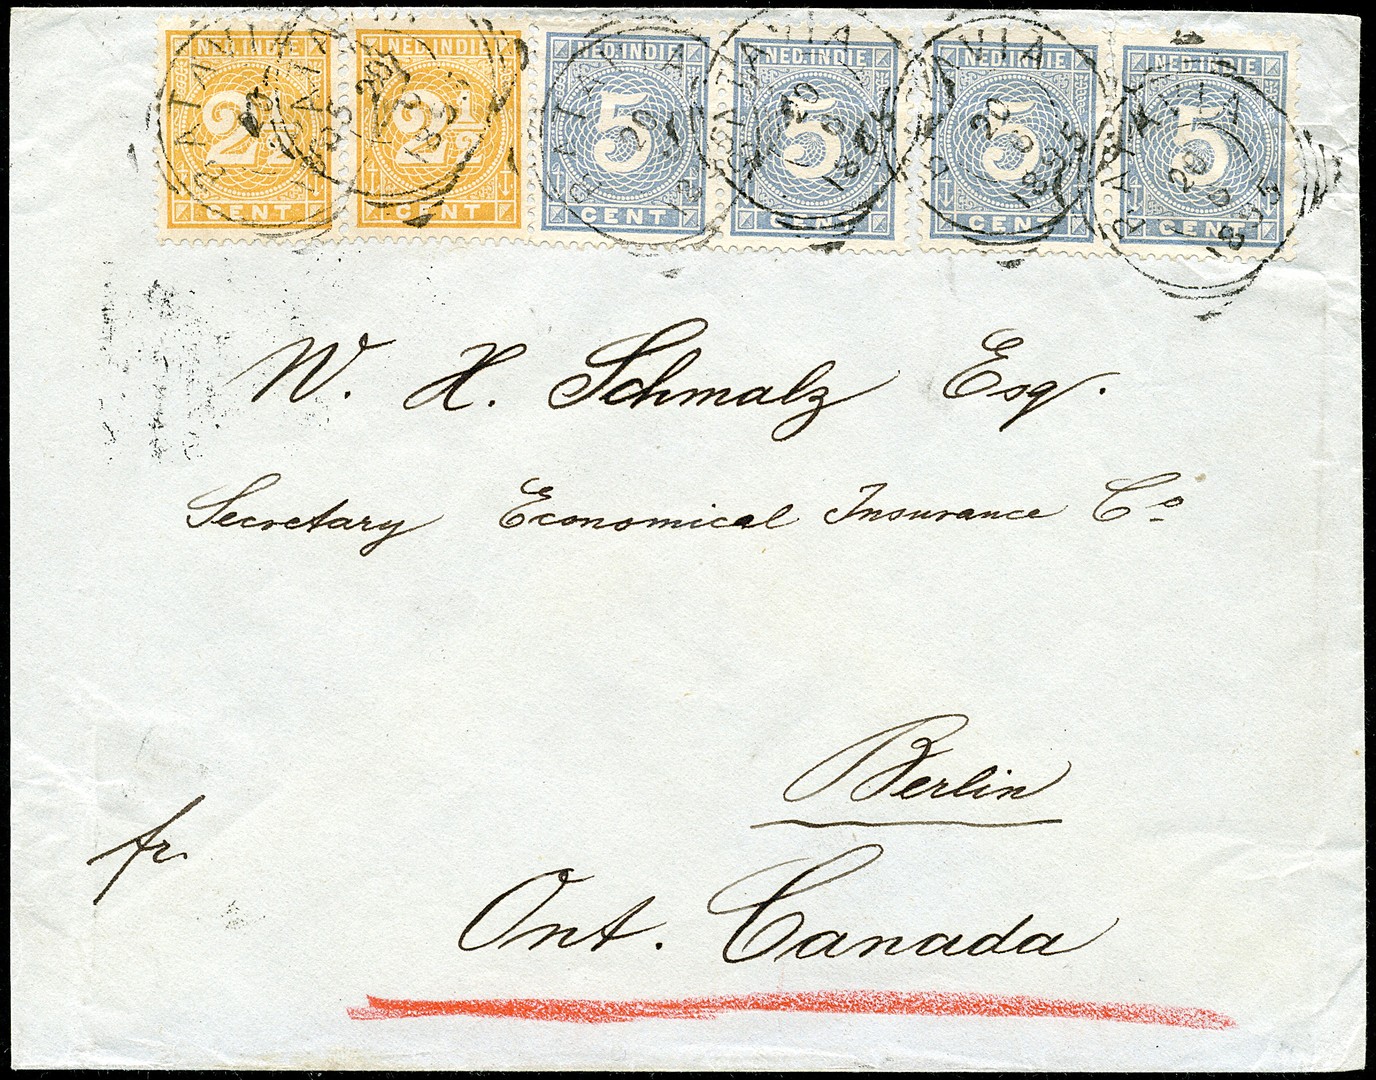 NED. INDIE NED. INDIE NED. INDIE NED. INDIE NED. INDIE NED. INDIE
2½ 2½ 5 5 5 5
CENT CENT CENT CENT CENT CENT
BATAVIA BATAVIA BATAVIA BATAVIA BATAVIA BATAVIA
W. H. Schmalz Esq.
Secretary Economical Insurance Co.
Berlin
fr.
Ont. Canada